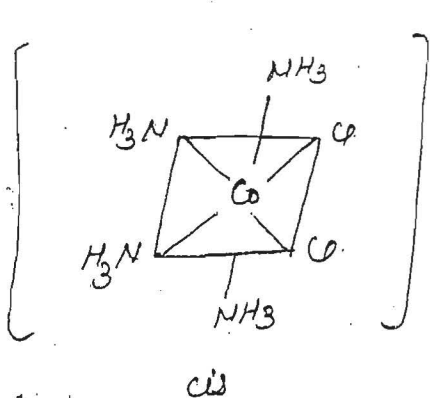 NH3
H3N Cl
Co
H3N Cl
NH3
cis